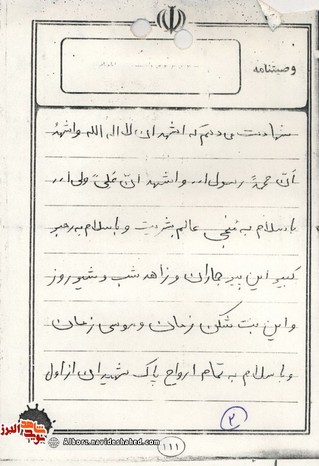 وصیتنامه
شهادت می دهم به اشهد ان لا اله الله واشهد
ان محمد رسول الله واشهد ان علی ولی الله
با سلام به منجی عالم بشریت و با سلام به رهبر
کبیر این پیر جاران و زاهد شب و شیر روز
و این بت شکن زمان و موسی زمان
و با سلام به تمام ارواح پاک شهیدان از اول
۲
۱۱۱
Alborz.navideshahed.com